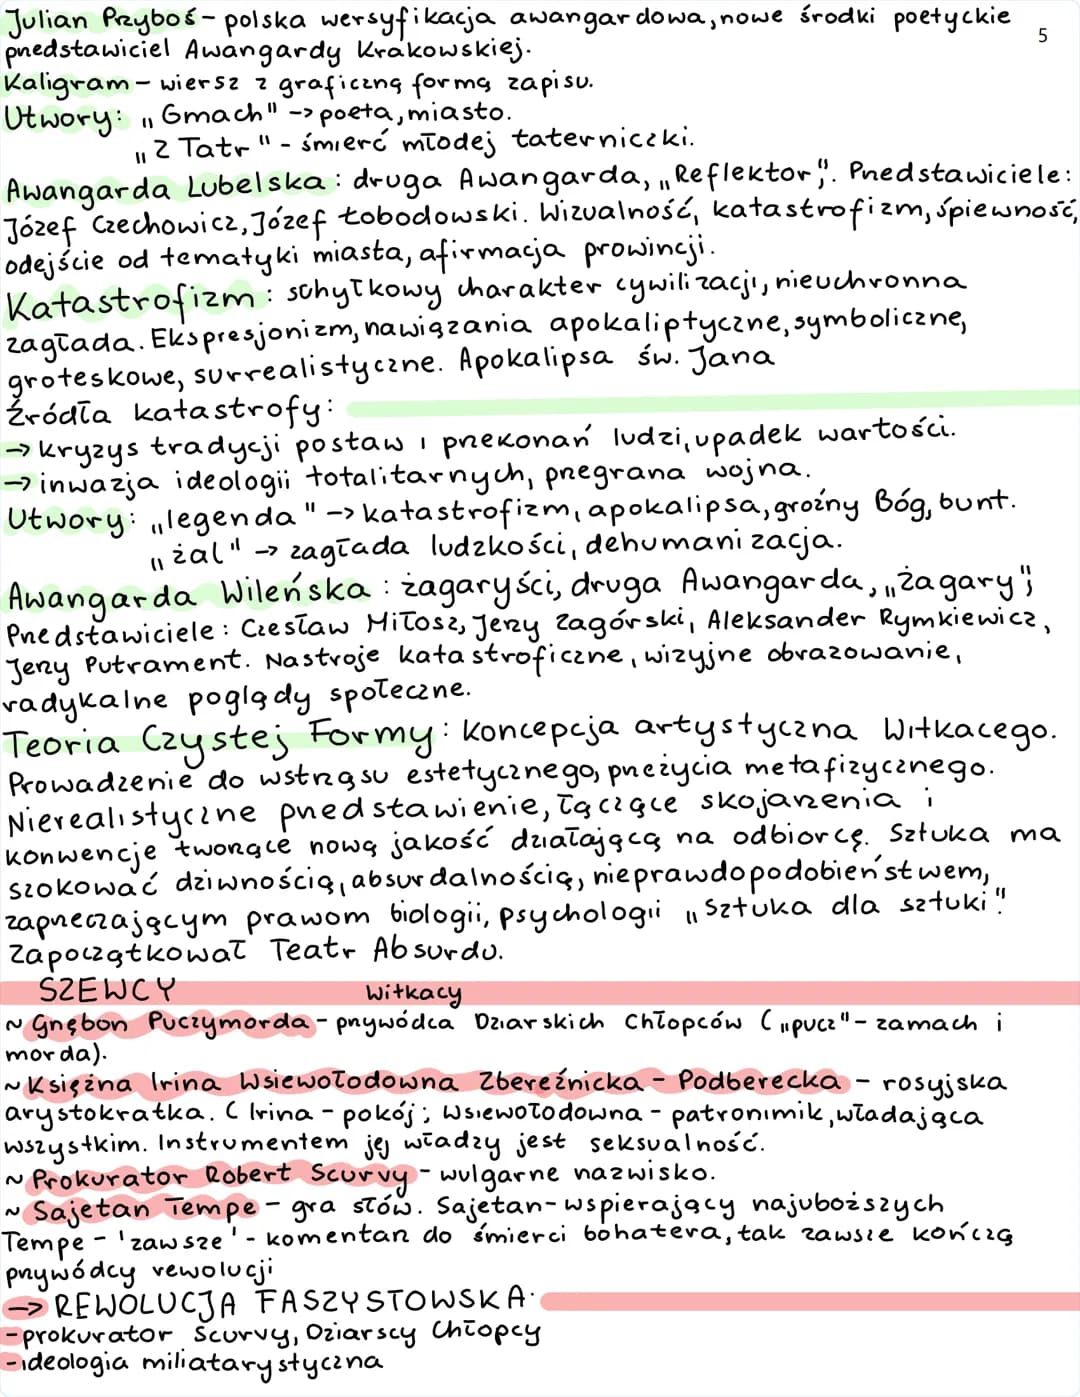 Julian Przyboś - polska wersyfikacja awangardowa, nowe środki poetyckie
5
przedstawiciel Awangardy Krakowskiej.
Kaligram - wiersz z graficzną formą zapisu.
Utwory: „Gmach" -> poeta, miasto.
„Z Tatr" - śmierć młodej taterniczki.
Awangarda Lubelska: druga Awangarda, „Reflektor". Przedstawiciele:
Józef Czechowicz, Józef Łobodowski. Wizualność, katastrofizm, śpiewność,
odejście od tematyki miasta, afirmacja prowincji.
Katastrofizm: schyłkowy charakter cywilizacji, nieuchronna
zagłada. Ekspresjonizm, nawiązania apokaliptyczne, symboliczne,
groteskowe, surrealistyczne. Apokalipsa św. Jana
Źródła katastrofy:
-> kryzys tradycji postaw i przekonań ludzi, upadek wartości.
-> inwazja ideologii totalitarnych, przegrana wojna.
Utwory: „legenda" -> katastrofizm, apokalipsa, groźny Bóg, bunt.
„żal" -> zagłada ludzkości, dehumanizacja.
Awangarda Wileńska: żagaryści, druga Awangarda, „żagary";
Przedstawiciele: Czesław Miłosz, Jerzy Zagórski, Aleksander Rymkiewicz,
Jerzy Putrament. Nastroje katastroficzne, wizyjne obrazowanie,
radykalne poglądy społeczne.
Teoria Czystej Formy: koncepcja artystyczna Witkacego.
Prowadzenie do wstrząsu estetycznego, przeżycia metafizycznego.
Nierealistyczne przedstawienie, łączące skojarzenia i
konwencje tworzące nową jakość działającą na odbiorcę. Sztuka ma
szokować dziwnością, absurdalnością, nieprawdopodobieństwem,
zaprzeczającym prawom biologii, psychologii „Sztuka dla sztuki"
Zapoczątkował Teatr Absurdu.
SZEWCY Witkacy
~ Gnębon Puczymorda - przywódca Dziarskich Chłopców („pucz" - zamach i
morda).
~ Księżna Irina Wsiewołodowna Zbereźnicka - Podberecka - rosyjska
arystokratka. (Irina - pokój; Wsiewołodowna - patronimik, władająca
wszystkim. Instrumentem jej władzy jest seksualność.
~ Prokurator Robert Scurvy - wulgarne nazwisko.
~ Sajetan Tempe - gra słów. Sajetan - wspierający najuboższych
Tempe - 'zawsze' - komentarz do śmierci bohatera, tak zawsze kończą
przywódcy rewolucji
-> REWOLUCJA FASZYSTOWSKA.
- prokurator Scurvy, Dziarscy Chłopcy
- ideologia miliatarystyczna